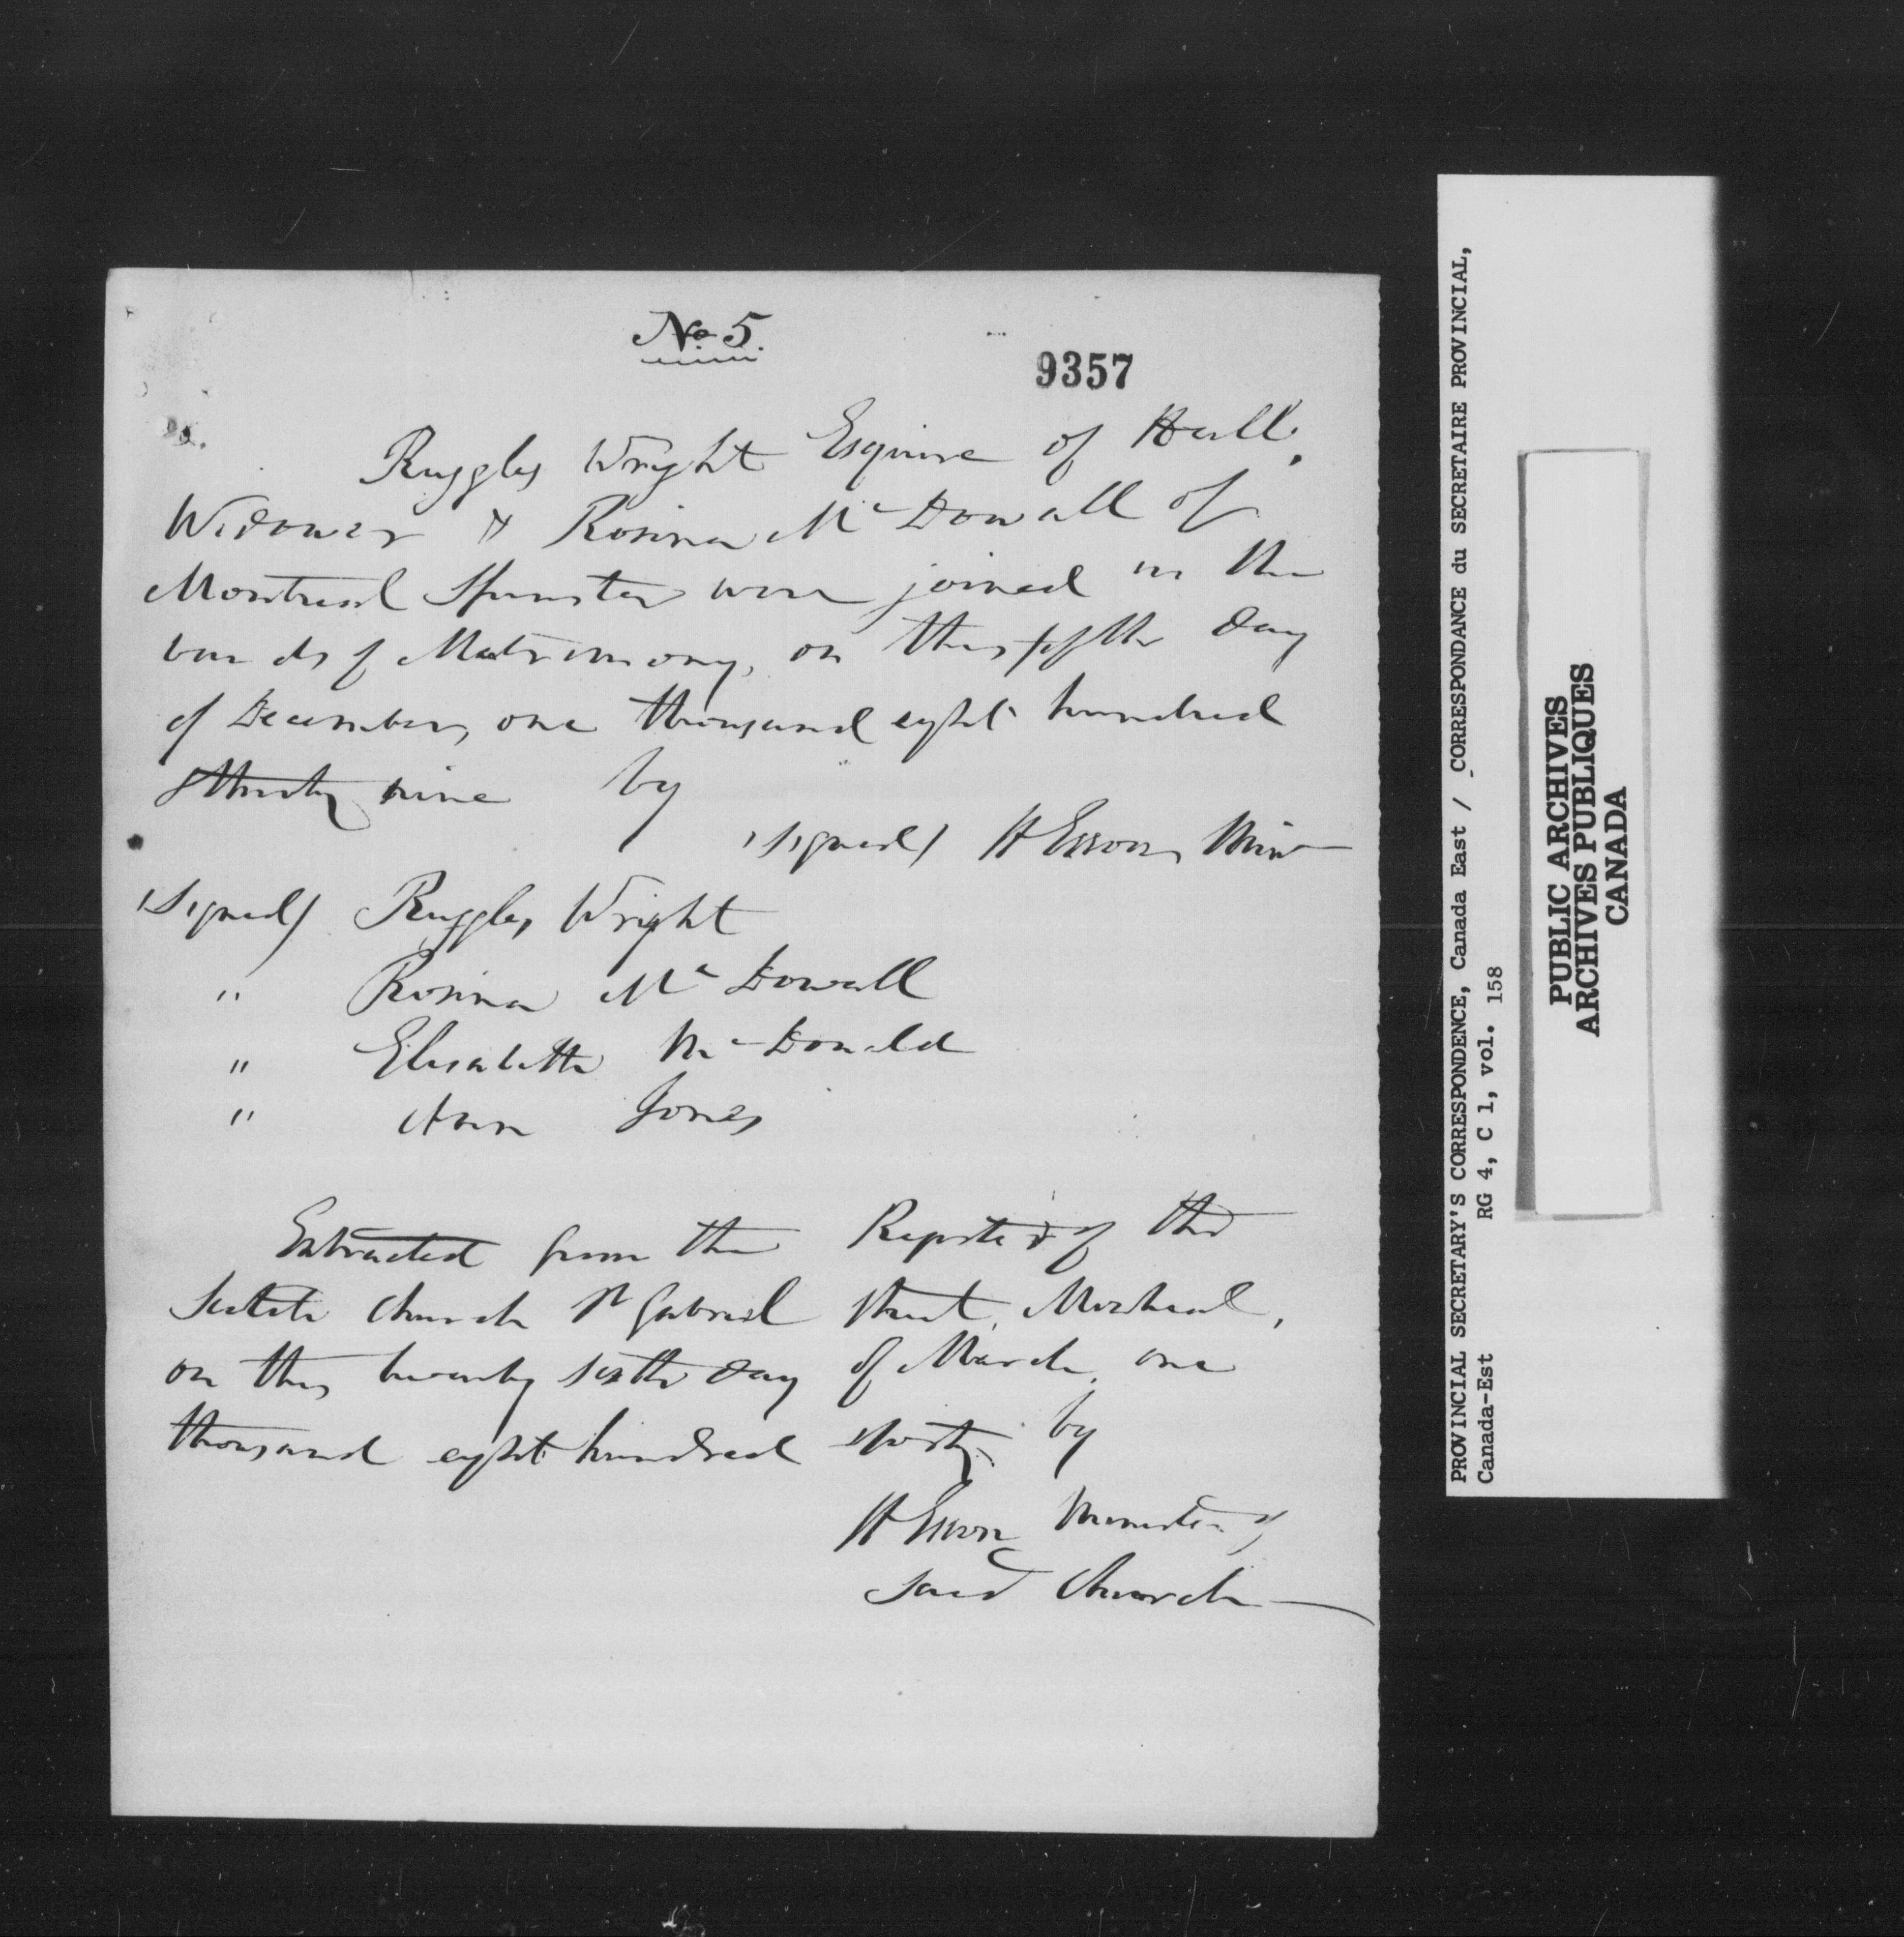 No 5.
9357
Ruggles Wright Esquire of Hull,
Widower & Rosina McDowall of
Montreal Spinster were joined in the
bonds of Matrimony, on this fifth day
of December, one thousand eight hundred
& thirty nine by
(signed) H Esson, Minr
(Signed) Ruggles Wright
" Rosina McDowall
" Elisabeth McDonald
" Ann Jones
Extracted from the Register of the
Scotch Church St Gabriel Street, Montreal,
on this twenty sixth day of March, one
thousand eight hundred & forty, by
H Esson Minister of
said Church
PROVINCIAL SECRETARY'S CORRESPONDENCE, Canada East / CORRESPONDANCE du SECRETAIRE PROVINCIAL,
Canada-Est RG 4, C 1, vol. 158
PUBLIC ARCHIVES
ARCHIVES PUBLIQUES
CANADA